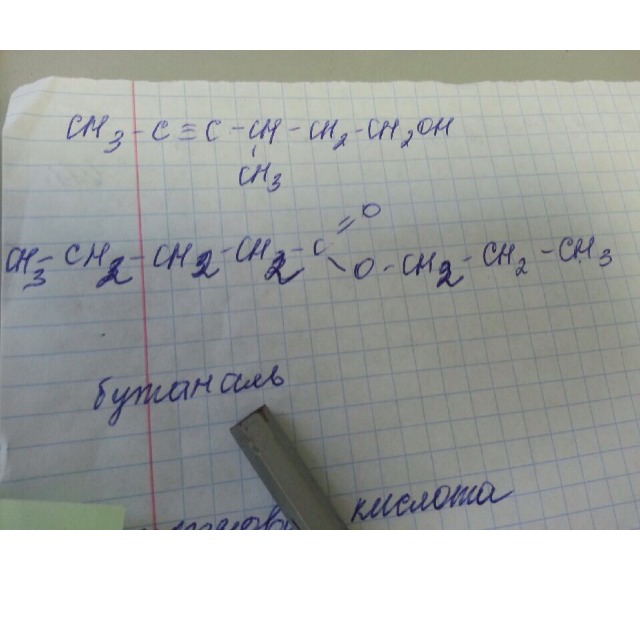 CH3 - C ≡ C - CH - CH2 - CH2OH
CH3
CH3 - CH2 - CH2 - CH2 - C = O
O - CH2 - CH2 - CH3
бутаналь
кислота